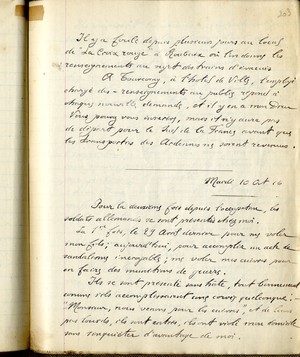 Il y a foule depuis plusieurs jours au local
de "La Croix rouge" à Roubaix où l'on donne les
renseignements au sujet des trains d'évacués
A Tourcoing, à l'hôtel de Ville, l'employé
chargé des renseignements au public répond à
chaque nouvelle demande, et il y en a mon Dieu
Vous pouvez vous inscrire, mais il n'y aura pas
de départ pour le Sud de la France avant que
les transportés des Ardennes ne soient revenus.
Mardi 10 Oct 16
Pour la deuxième fois depuis l'occupation, les
soldats allemands se sont présentés chez moi.
La 1ère fois, le 29 Avril dernier pour me voler
mon fils; aujourd'hui, pour accomplir un acte de
vandalisme inacceptable; me voler mes cuivres pour
en faire des munitions de guerre.
Ils se sont présentés sans hâte, tout bonnement
comme s'ils accomplissaient une corvée quelconque:
"Monsieur, nous venons pour les cuivres", et
ils sont entrés, ils ont vidé mon domicile
sans s'inquiéter d'avantage de moi.